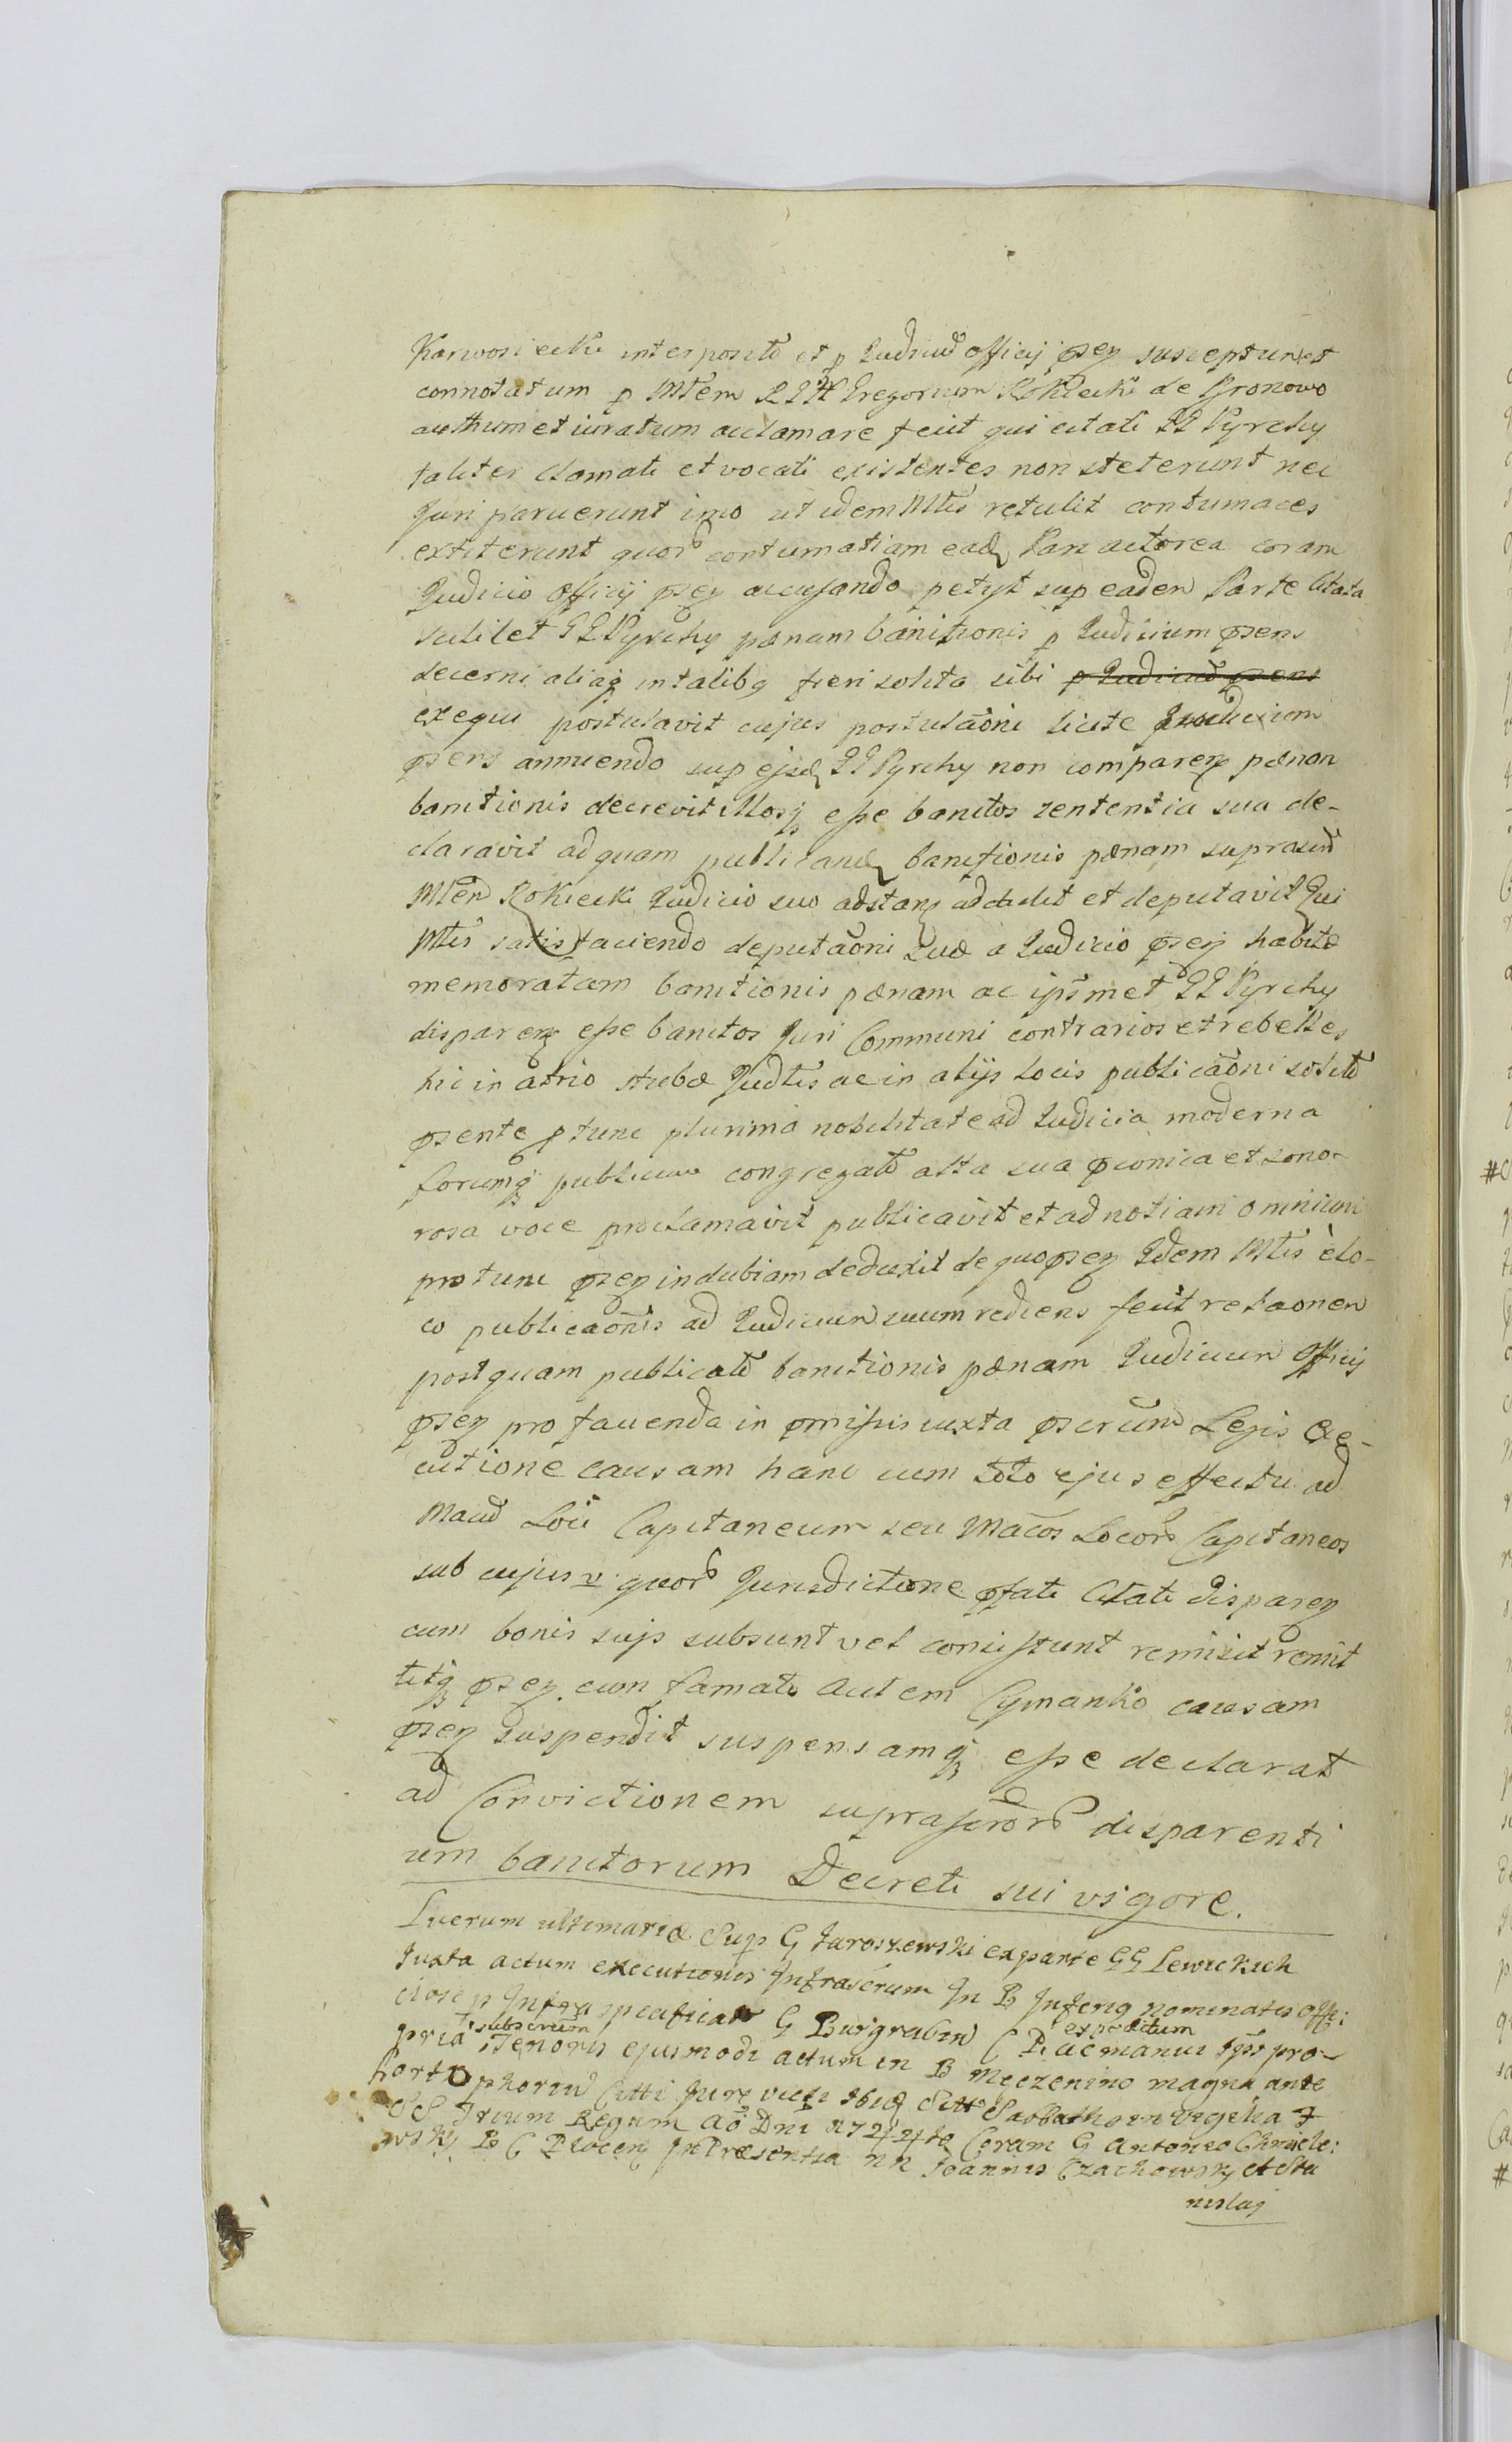 Karwosiecki interposito et p Judiciu officij pseñ susceptum et
connotatum p Mtem R I H Gregorium Rokicki de Gronowo
authum et iuratum acclamare fecit qui citati GG Pyrchy
taliter clamati et vocati existentes non steterunt nec
Juri paruerunt imo ut idem Mtis retulit contumaces
extiterunt quor contumatiam eadē Pars actorea coram
Judicio officij pseñ accusando petyt sup eadem Parte Citata
scilicet GG Pyrchy pœnam banitionis p Judicium psens
decerni aliaq in talibq fieri solita sibi p Judiciū psens
exequi postulavit cujus postulaōni licite Judicium
psens annuendo sup ejsdē GG Pyrchy non compareñ pœnam
banitionis decrevit illosq esse banitos sententia sua de-
claravit ad quam publicandē banitionis pœnam suprascrī
Mtem Rokicki Judicio suo adstanē addidit et deputavit Qui
Mtis satisfaciendo deputaōni suæ a Judicio pseñ habitæ
memoratam banitionis pœnam ac ipsmet GG Pyrchy
dispareñ esse banitos Juri Communi contrarios et rebelles
hic in atrio stubæ Judtis ac in alijs locis publicaōni solitis
psente p tunc plurima nobilitate ad Judicia moderna
forumq publicum congregata alta sua pconica et sono-
rosa voce proclamavit publicavit et ad notiam omnium
pro tunc pseñ indubiam deduxit de quo pseñ Idem Mtis e lo-
co publicaōnis ad Judicium suum rediens fecit relaonem
post quam publicatā banitionis pœnam Judicium officij
pseñ pro facienda in pmissis iuxta pscrum Legis exe-
cutione causam hanc cum toto ejus effectu ad
Macū Loci Capitaneum seu Macos Locor Capitaneos
sub cujus v quor Jurisdictione pfati Citati dispareñ
cum bonis suis subsunt vel consistunt remisit remit
titq pseñ cum famato autem Cymanko causam
pseñ suspendit suspensamq esse declarat
ad Convictionem suprascror disparenti
um banitorum Decreti sui vigore.
Lucrum ultimariæ Sup G Jaroszewski ex parte GG Lewickich
Juxta actum executionis Infrascrum In B Inferiq nominatis offi:
ciose p Infra specificatū G Burgrabiū C P. expeditum ac manu Ips pro-
pria subscrum Tenoris ejusmodi actum in B Męczenino magna ante
Hortophorum Citti Jure victi ibiq Sitt Sabbatho in Vigilia F
SS Trium Regum Ao Dni 1724to Coram G Antonio Chmiele:
wsky B C Plocen In Præsentia NN Joannis Czachowsky et Sta
nislaj